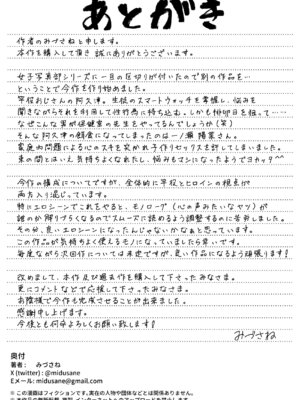 あとがき
作者のみづさねと申します。
本作を購入して頂き誠にありがとうございます。
女子写真部シリーズに一旦の区切りが付いたので別の作品を…
ということで今作を作り始めました。
平役おじさんの阿久津。生徒のスマートウォッチを掌握し、悩みを
聞きながらそれを利用して性行為に持ち込む。しかも排卵日を狙って……
なぜこんな男が保健室の先生をやってるんでしょうか(笑)
そんな阿久津の餌食になってしまったのは一ノ瀬 陽菜さん。
家庭内問題による心のスキを突かれ子作りセックスを許してしまいました。
束の間とはいえ気持ちよくなれたし、悩みもマシになったようでヨカッタ^^
今作の構成についてですが、全体的に平役とヒロインの視点が
両方入り混じっています。
特にエロシーンでこれをやると、モノローグ(心の声みたいなヤツ)が
誰のか解りづらくなるのでスムーズに読めるよう調整するのに苦労しました。
その分、良いエロシーンになったんじゃないかなぁと思っています。
この作品が気持ちよく使えるモノになっていましたら幸いです。
毎度ながら次回作については未定ですが、良い作品になるよう頑張ります!
改めまして、本作及び過去作を購入して下さったみなさま。
更にコメントなどで応援して下さったみなさま。
お陰様で今作も完成させることが出来ました。
感謝申し上げます。
今後とも何卒よろしくお願い致します!
みづさね
奥付
著者: みづさね
X (twitter) : @midusane
Eメール: midusane@gmail.com
※ この漫画はフィクションです。実在の人物や団体などとは関係ありません。